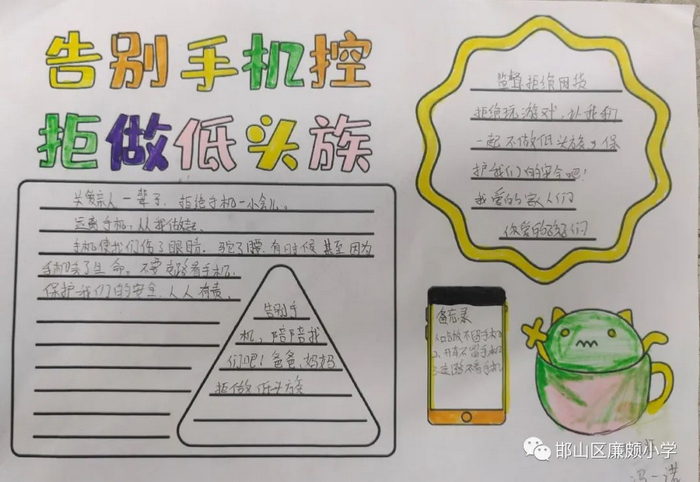 告别手机控
拒做低头族
关爱亲人一辈子，拒绝手机一小会儿。
远离手机，从我做起。
手机使我们伤了眼睛、驼了腰，有时候甚至因为
手机丢了生命。不要走路看手机，
保护我们的安全，人人有责。
告别手
机，陪陪我
们吧！爸爸，妈妈
拒做低头族
拒绝网
拒绝玩游戏，从我们
一起不做低头族，保
护我们的安全吧！
我爱的家人们
你爱的孩子们
备忘录
1.吃饭不看手机
2.开车不看手机
3.走路不看手机
邯山区廉颇小学
冯一诺